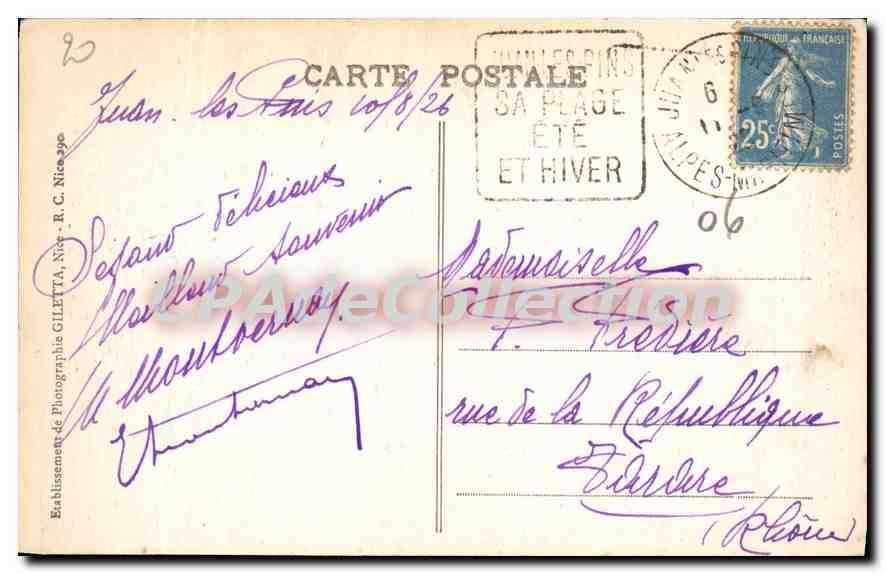 20
CARTE POSTALE
JUAN LES PINS
SA PLAGE
ÉTÉ
ET HIVER
JUAN-LES-PINS
6
ALPES-MMES
REPUBLIQUE FRANÇAISE
25c
POSTES
06
Juan-les Pins 10/8/26
Séjour délicieux
Meilleur souvenir
M Montvernay.
EMontvernay
Mademoiselle
F. Predière
rue de la République
Tarare
(Rhône
CPAdeCollection
Etablissement de Photographie GILETTA, Nice - R. C. Nice 290